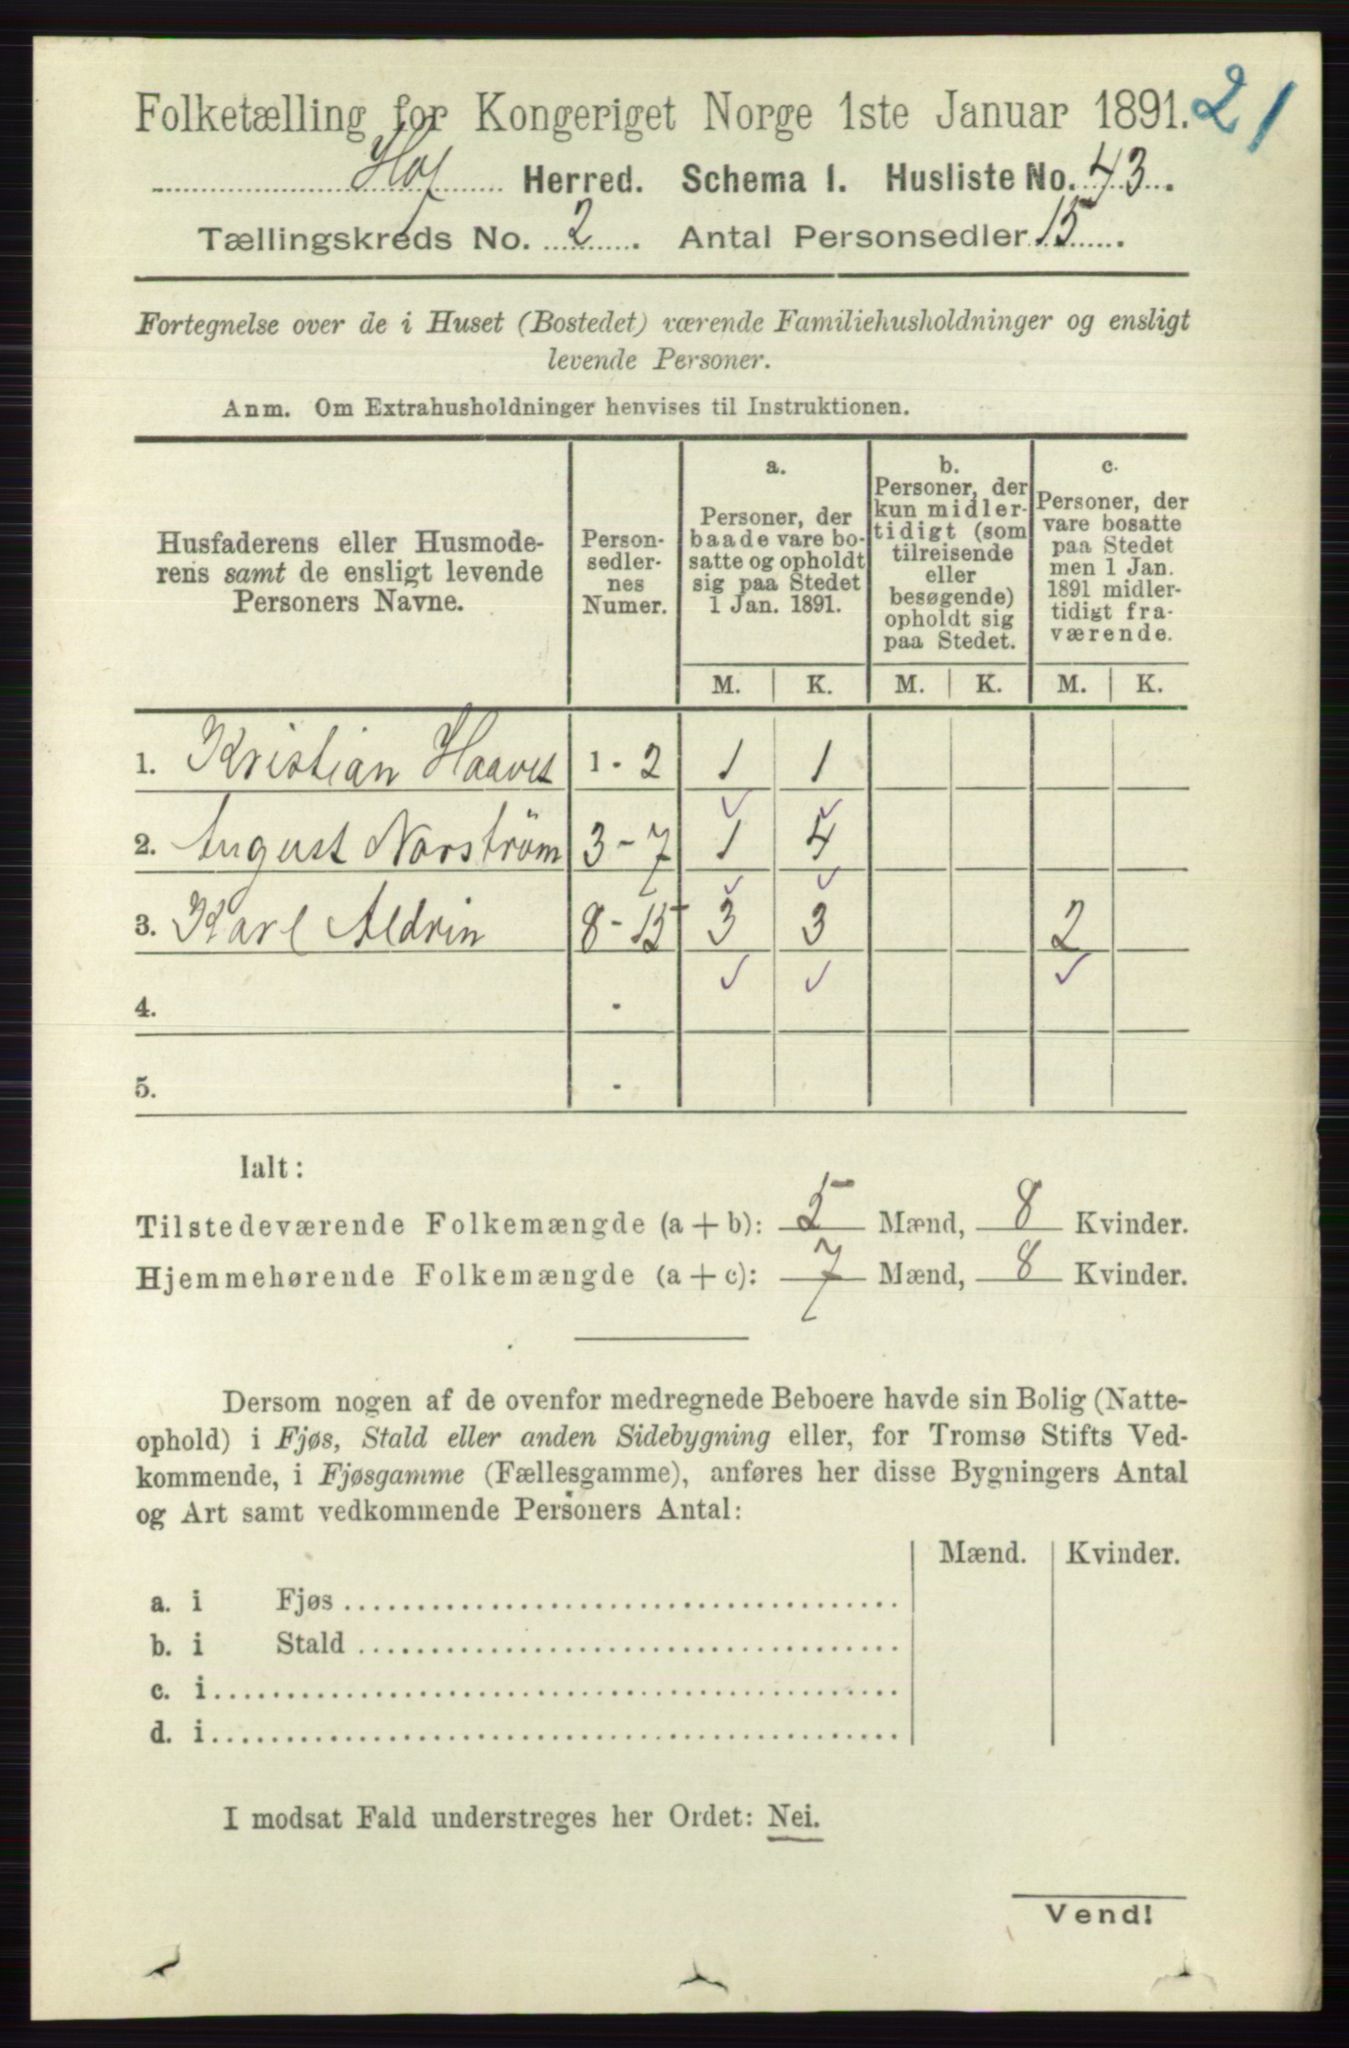 21
Folketælling for Kongeriget Norge 1ste Januar 1891.
Hof Herred. Schema 1. Husliste No. 43.
Tællingskreds No. 2. Antal Personsedler 15.
Fortegnelse over de i Huset (Bostedet) værende Familiehusholdninger og ensligt
levende Personer.
Anm. Om Extrahusholdninger henvises til Instruktionen.
Husfaderens eller Husmode-
rens samt de ensligt levende
Personers Navne.
Person-
sedler-
nes
Numer.
a.
Personer, der
baade vare bo-
satte og opholdt
sig paa Stedet
1 Jan. 1891.
b.
Personer, der
kun midler-
tidigt (som
tilreisende
eller
besøgende)
opholdt sig
paa Stedet.
c.
Personer, der
vare bosatte
paa Stedet
men 1 Jan.
1891 midler-
tidigt fra-
værende.
M. K. M. K. M. K.
1. Kristian 1 - 2 1 1
2. August Norström 3 - 7 1 4
3. Karl Aldrin 8 - 15 3 3 2
4. -
5. -
Ialt:
Tilstedeværende Folkemængde (a + b): 5 Mænd, 8 Kvinder.
Hjemmehørende Folkemængde (a + c): 7 Mænd, 8 Kvinder.
Dersom nogen af de ovenfor medregnede Beboere havde sin Bolig (Natte-
ophold) i Fjøs, Stald eller anden Sidebygning eller, for Tromsø Stifts Ved-
kommende, i Fjøsgamme (Fællesgamme), anføres her disse Bygningers Antal
og Art samt vedkommende Personers Antal:
Mænd. Kvinder.
a. i Fjøs
b. i Stald
c. i
d. i
I modsat Fald understreges her Ordet: Nei.
Vend!